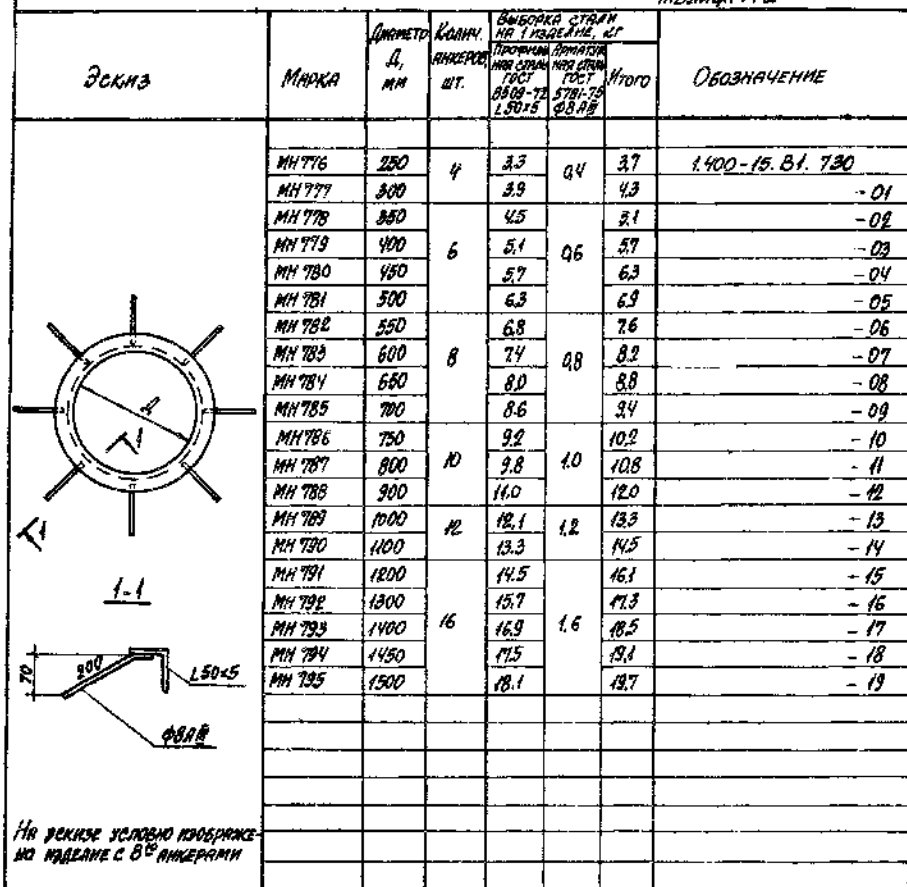 Эскиз
Марка
Диаметр Д, мм
Колич. анкеров, шт.
Выборка стали на 1 изделие, кг
Профильная сталь ГОСТ 8509-72 L50×5
Арматурная сталь ГОСТ 5781-75 Ф8АIII
Итого
Обозначение
МН 776 250 4 3,3 0,4 3,7 1.400-15.В1.730
МН 777 300 3.9 4.3 -01
МН 778 350 6 4.5 0,6 5.1 -02
МН 779 400 5.1 5.7 -03
МН 780 450 5.7 6.3 -04
МН 781 500 6.3 6.9 -05
МН 782 550 8 6.8 0,8 7.6 -06
МН 783 600 7.4 8.2 -07
МН 784 650 8.0 8.8 -08
МН 785 700 8.6 9.4 -09
МН 786 750 10 9.2 1.0 10.2 -10
МН 787 800 9.8 10.8 -11
МН 788 900 11.0 12.0 -12
МН 789 1000 12 12.1 1.2 13.3 -13
МН 790 1100 13.3 14.5 -14
МН 791 1200 16 14.5 1.6 16.1 -15
МН 792 1300 15.7 17.3 -16
МН 793 1400 16.9 18.5 -17
МН 794 1450 17.5 19.1 -18
МН 795 1500 18.1 19.7 -19
Д
1
1
1-1
70
200
L50×5
Ф8АIII
На эскизе условно изображе-
но изделие с 8ю анкерами